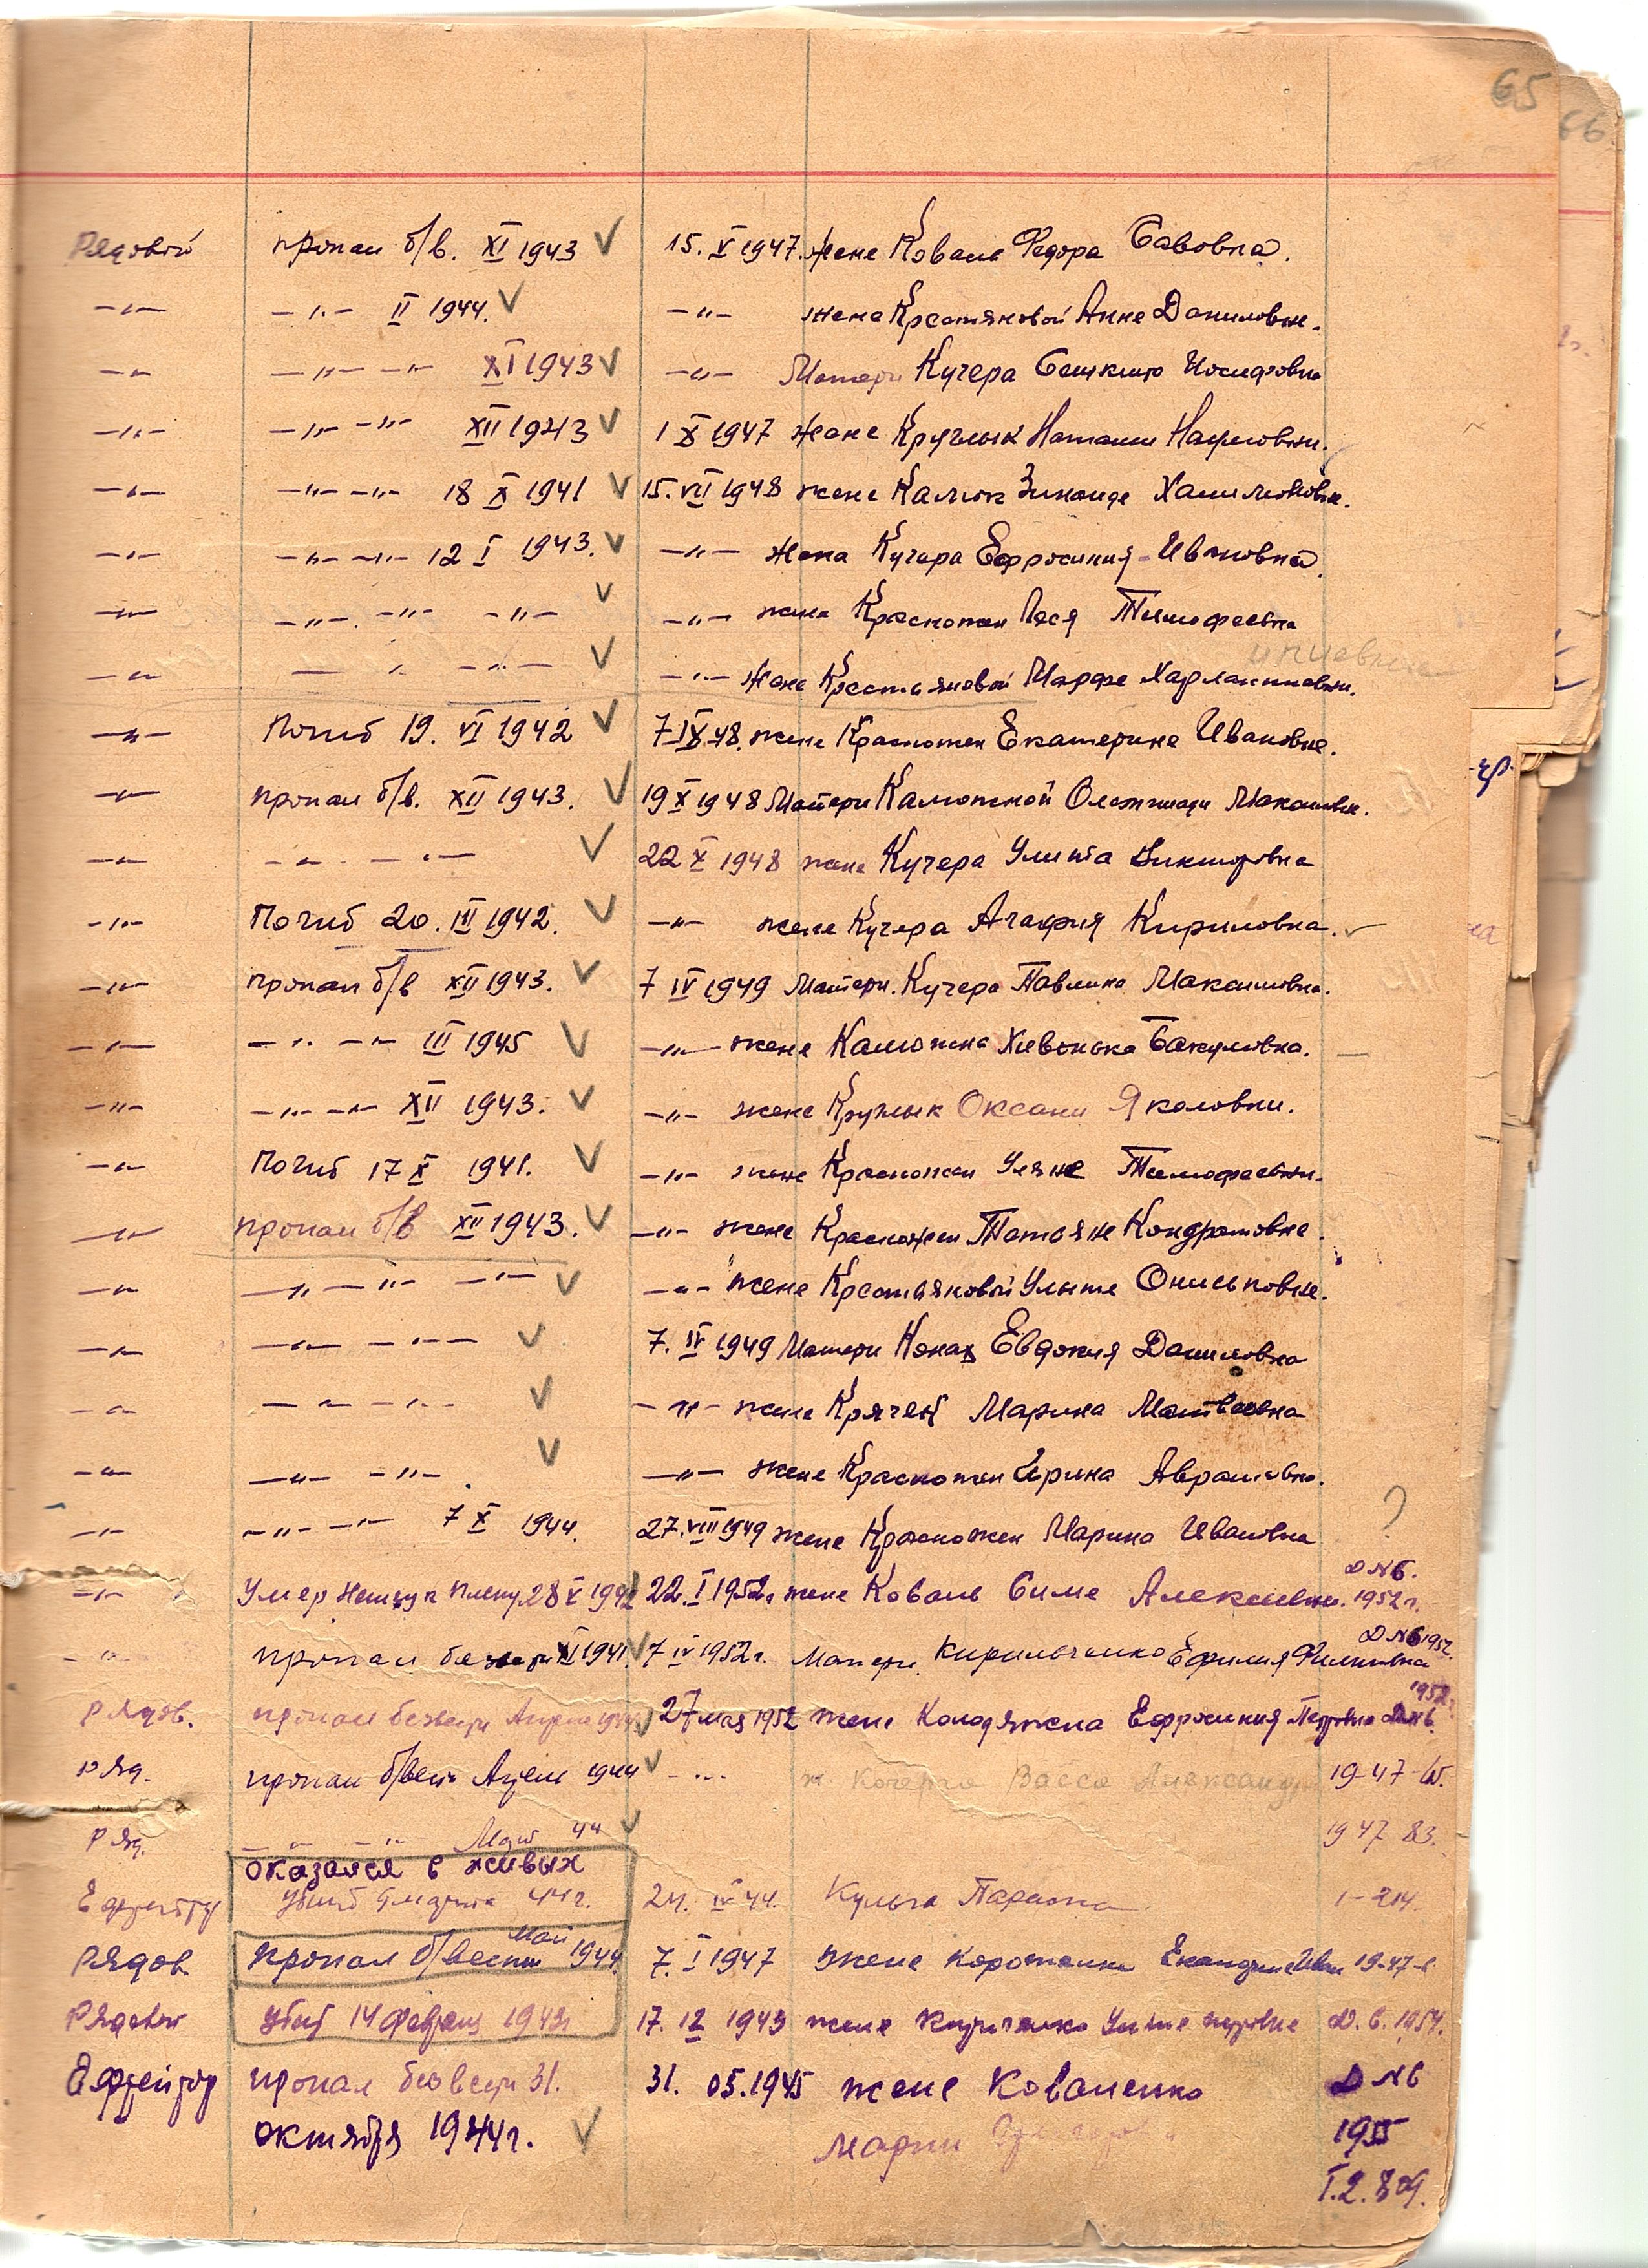 65
66
Рядовой пропал б/в. XI 1943 15. V 1947. жене Коваль Федора Савовна.
—"— —"— II 1944. —"— жена Крестяновой Анне Даниловне.
—"— —"— —"— XI 1943 —"— Матери Кучера Иосифовна
—"— —"— —"— XII 1943 1 X 1947 жене Круглык Наташи Наумовни.
—"— —"— —"— 18 X 1941 15. VII 1948 жене Калюж Зинаиде
—"— —"— —"— 12 I 1943. —"— жена Кучера Ефросиния Ивановна
—"— —"— —"— —"— —"— жена Красножон Леся Тимофеевна
—"— — " —"— —"— жене Крестьяновой Марфе Харлампиевни.
—"— Погиб 19. VI 1942 7 IX 48. жене Краможен Екатерине Ивановне.
—"— пропал б/в. XII 1943. 19 X 1948 Матери Калюжной
—"— —"— —"— 22 X 1948 жена Кучера Улита Викторовна
—"— Погиб 20. III 1942. —"— жене Кучера Агафия Кириловна.
—"— пропал б/в XII 1943. 7 IV 1949 Матери Кучера Павлина Максимовна.
—"— —"— —"— III 1945 —"— жене Калюжна
—"— —"— —"— XII 1943. —"— жене Круглык Оксани Яколовни.
—"— Погиб 17 X 1941. —"— жене Красножон Уляне Тимофеевни.
—"— пропал б/в XII 1943. —"— жене Красножен Татьяне Кондратовне.
—"— —"— —"— —"— —"— жене Крестьяновой Улыте Ониськовне.
—"— —"— —"— 7. IV 1949 Матери Конах Евдокия Даниловна
—"— —"— —"— —"— жене Крячек Марина Матвеевна
—"— —"— —"— —"— жене Красножон Ирина Аврамовна.
—"— —"— —"— 7 X 1944. 27. VIII 1949 жене Красножен Марина Ивановна ?
Д №6.
—"— Умер плену 28 V 1942 22. I 1952г. жене Коваль Симе Алексеевни. 1952 г.
Д №6 1952.
—"— пропал безвести XI 1941 7 IV 1952г. Матери Кирильченко Ефимия Филиповна
1952 г.
Рядов. пропал безвести Апрель 1944 27 мая 1952 жене Колодяжна Ефросиния Петровна Д №6
Ряд. пропал б/вести 1944 —"— ж. Кочерга Васса Александр 19-47-
Ряд. —"— —"— Май 44 1947 83.
оказался в живых
Ефрейтор убит 9 марта 44 г. 24. IV 44. Кулига Параска 1-214.
Май
Рядов. Пропал б/вести 1944 7. I 1947 жене 19-47-
Рядовой убит 14 февраля 1943 17. 12 1943 жене Д. 6. 1954.
Ефрейтор пропал безвести 31. 31. 05. 1945 жене Коваленко Д №6
октября 1944г. Марии 1955
I. 2. 809.